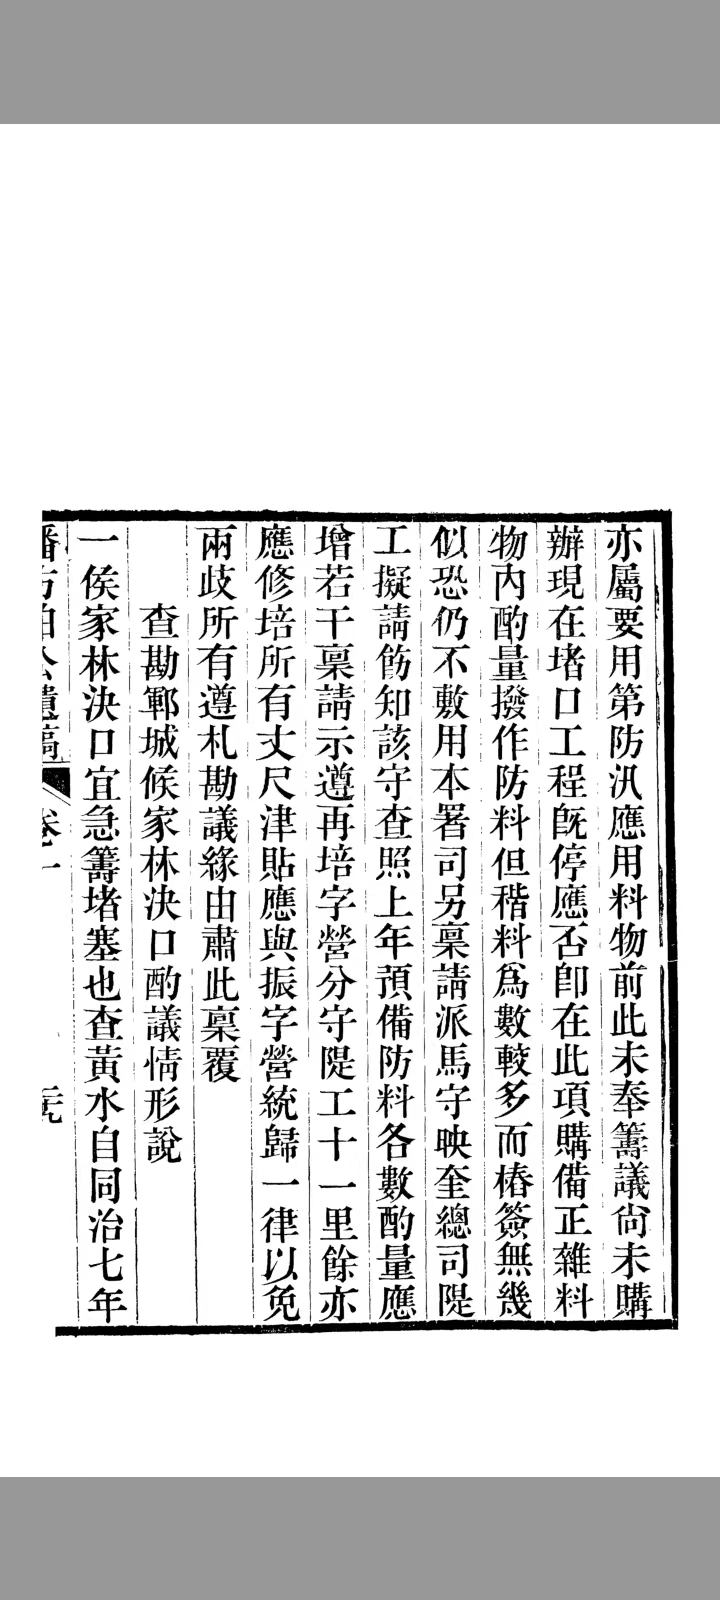 亦屬要用第防汛應用料物前此未奉籌議尙未購
辦現在堵口工程旣停應否卽在此項購備正雜料
物內酌量撥作防料但稭料爲數較多而樁簽無幾
似恐仍不敷用本署司另稟請派馬守映奎總司隄
工擬請飭知該守查照上年預備防料各數酌量應
增若干稟請示遵再培字營分守隄工十一里餘亦
應修培所有丈尺津貼應與振字營統歸一律以免
兩歧所有遵札勘議緣由肅此稟覆
查勘鄆城候家林決口酌議情形說
一侯家林決口宜急籌堵塞也查黃水自同治七年
潘方伯公遺稿 卷一